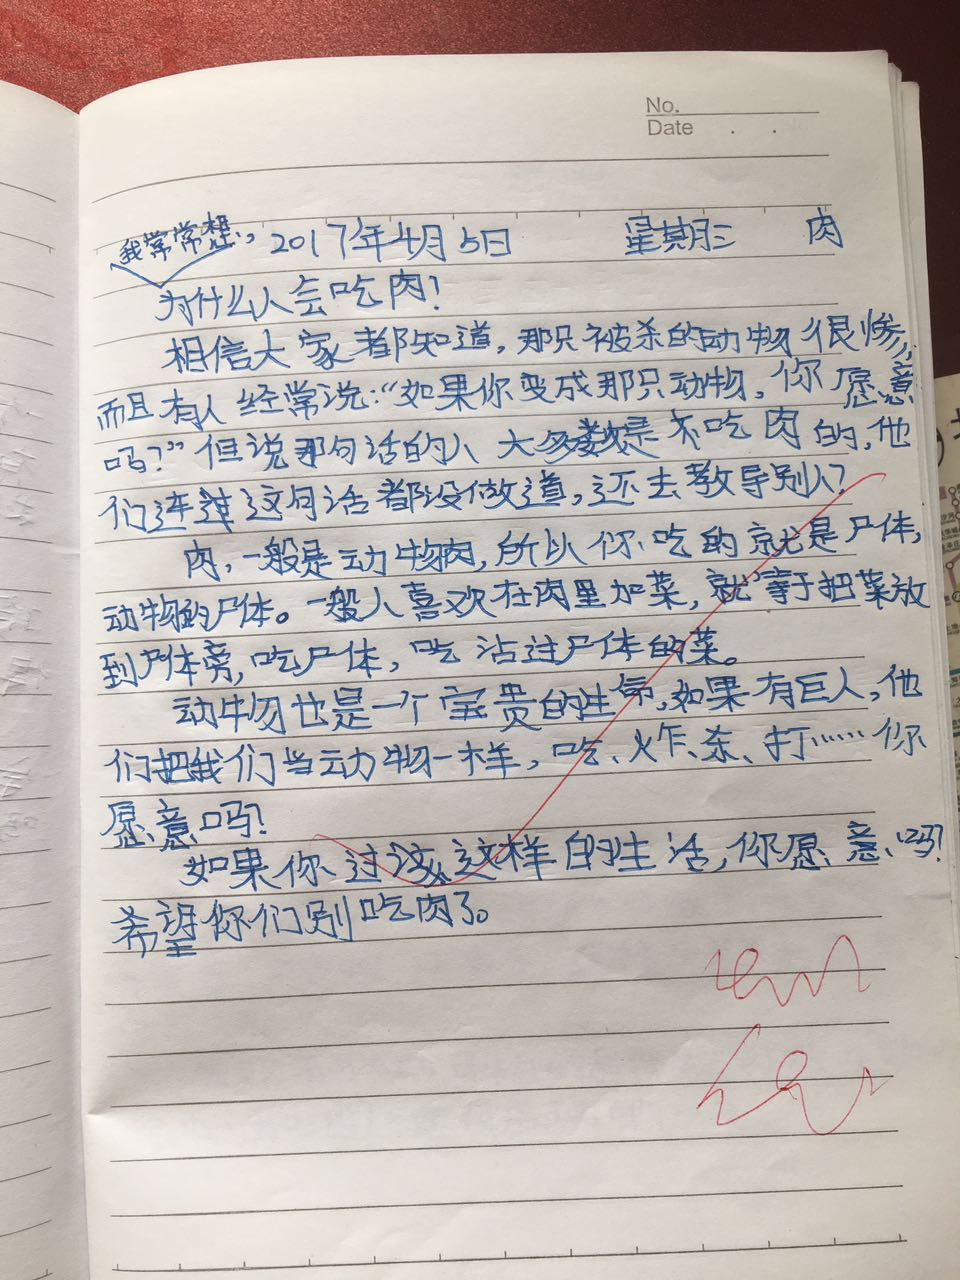 No.
Date . .
我常常想, 2017年4月5日 星期三 肉
为什么人会吃肉?
相信大家都知道,那只被杀的动物很惨,
而且有人经常说:“如果你变成那只动物,你愿意
吗?”但说那句话的人大多数是不吃肉的,他
们连这句话都没做道,还去教导别人?
肉,一般是动物肉,所以你吃的就是尸体,
动物的尸体。一般人喜欢在肉里加菜,就等于把菜放
到尸体旁,吃尸体,吃沾过尸体的菜。
动物也是一个宝贵的生命,如果有巨人,他
们把我们当动物一样,吃、炸、杀、打……你
愿意吗?
如果你过这样的生活,你愿意吗?
希望你们别吃肉了。